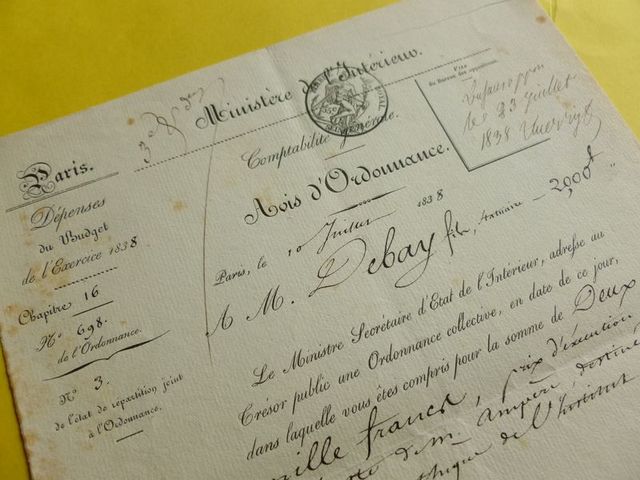 Ministère de l'Intérieur.
Comptabilité générale.
Avis d'Ordonnance.
Visa
au Bureau des oppositions
le 23 Juillet
1838
Paris.
Dépenses
du Budget
de l'Exercice 1838
Chapitre 16
N° 698.
de l'Ordonnance.
N° 3.
de l'état de répartition joint
à l'Ordonnance.
Paris, le 10 Juillet 1838
A M. Debay fils, Statuaire — 2,000f
Le Ministre Secrétaire d'Etat de l'Intérieur, adresse au
Trésor public une Ordonnance collective, en date de ce jour,
dans laquelle vous êtes compris pour la somme de Deux
mille francs, prix d'exécution
de m. ampère, destiné
de l'Institut